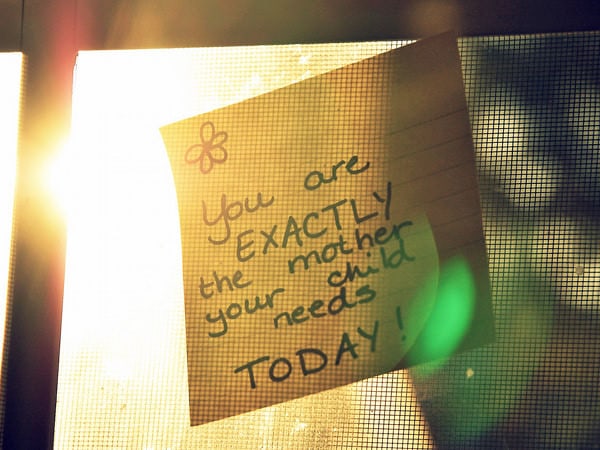 You are
EXACTLY
the mother
your child
needs
TODAY!